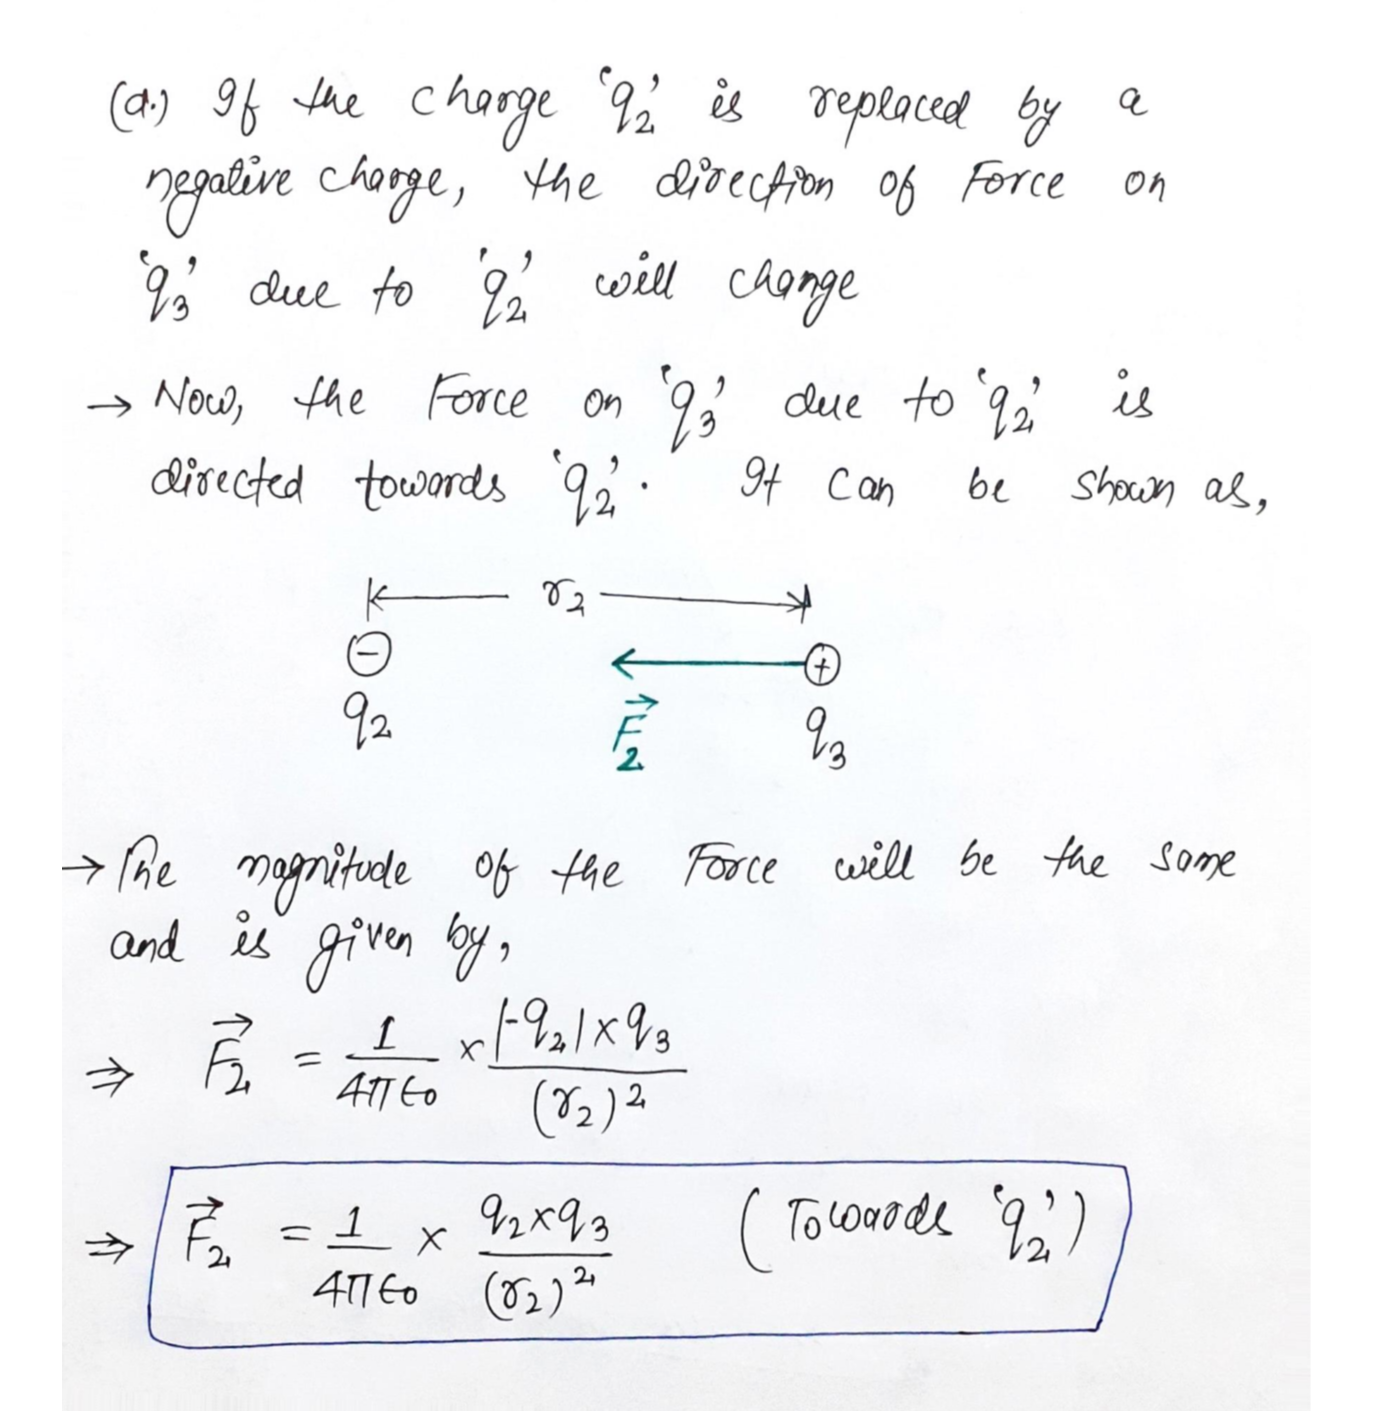 (d.) If the charge 'q₂' is replaced by a
negative charge, the direction of Force on
'q₃' due to 'q₂' will change
→ Now, the Force on 'q₃' due to 'q₂' is
directed towards 'q₂'. It can be shown as,
r₂
− +
q₂ F⃗₂ q₃
→ The magnitude of the Force will be the same
and is given by,
⇒ F⃗₂ = 1/4πε₀ × |-q₂| × q₃/(r₂)²
⇒ F⃗₂ = 1/4πε₀ × q₂×q₃/(r₂)² (Towards 'q₂')